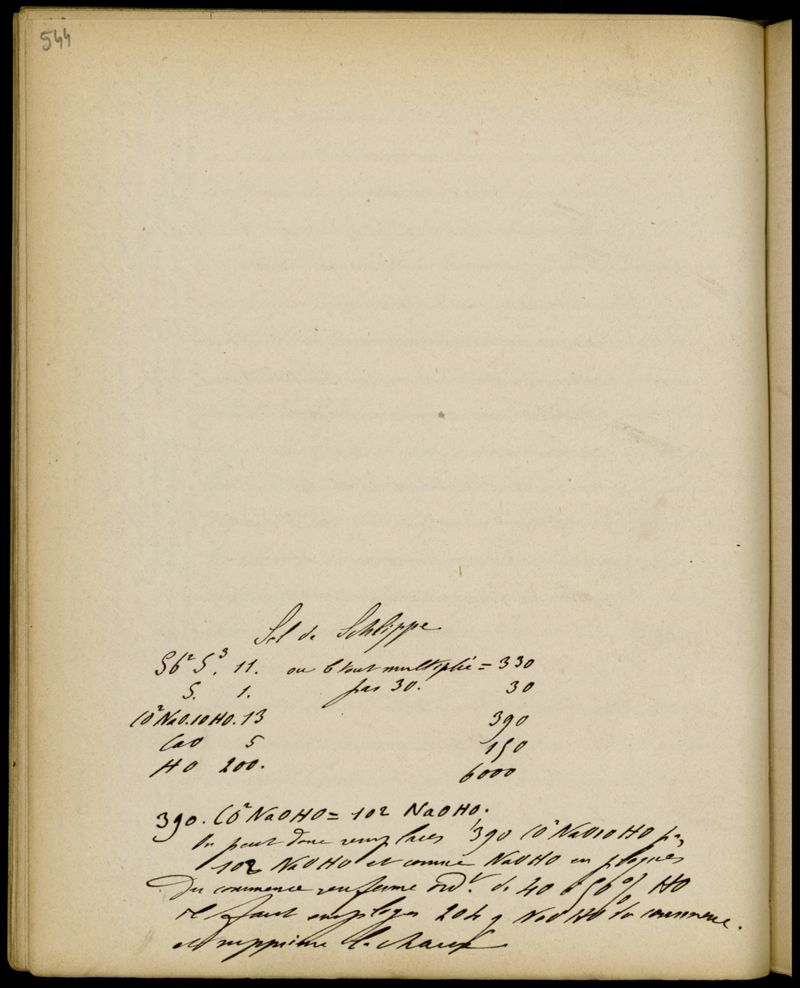 544
Sel de Schlippe
Sb² S³. 11. ou le tout multiplié = 330
S. 1. par 30. 30
CO² NaO.10HO. 13 390
CaO 5 150
HO 200. 6000
390. CO² NaOHO = 102 NaOHO.
On peut donc remplacer 390 CO² NaO10HO par
102 NaOHO et comme NaOHO en plaques
du commerce renferme ord.t de 40 à 50 % HO
il faut employer 204 g NaOHO du commerce.
et supprimer la chaux